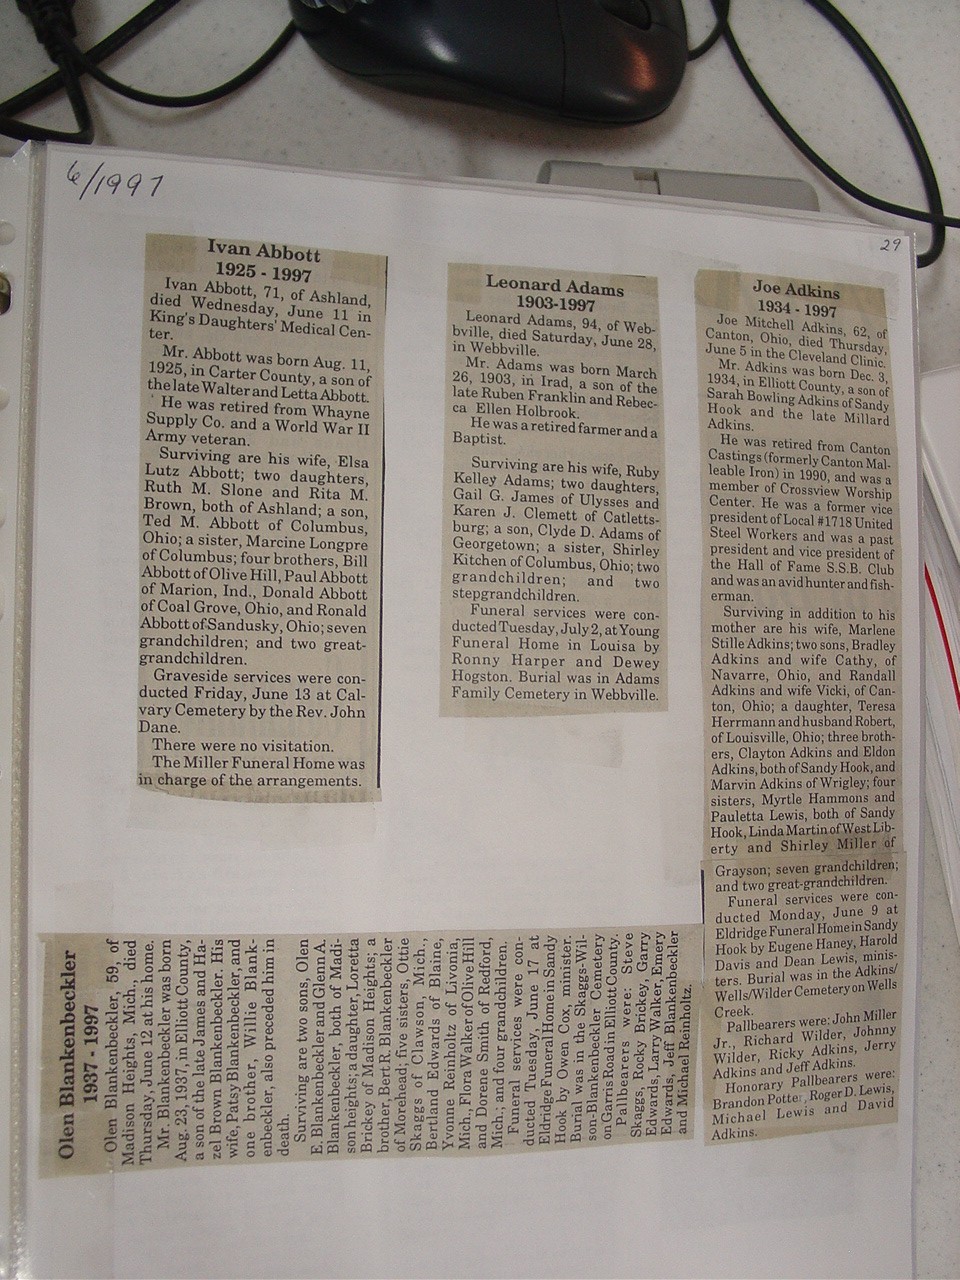 6/1997
29
Ivan Abbott
1925 - 1997
Ivan Abbott, 71, of Ashland,
died Wednesday, June 11 in
King's Daughters' Medical Cen-
ter.
Mr. Abbott was born Aug. 11,
1925, in Carter County, a son of
the late Walter and Letta Abbott.
He was retired from Whayne
Supply Co. and a World War II
Army veteran.
Surviving are his wife, Elsa
Lutz Abbott; two daughters,
Ruth M. Slone and Rita M.
Brown, both of Ashland; a son,
Ted M. Abbott of Columbus,
Ohio; a sister, Marcine Longpre
of Columbus; four brothers, Bill
Abbott of Olive Hill, Paul Abbott
of Marion, Ind., Donald Abbott
of Coal Grove, Ohio, and Ronald
Abbott of Sandusky, Ohio; seven
grandchildren; and two great-
grandchildren.
Graveside services were con-
ducted Friday, June 13 at Cal-
vary Cemetery by the Rev. John
Dane.
There were no visitation.
The Miller Funeral Home was
in charge of the arrangements.
Leonard Adams
1903-1997
Leonard Adams, 94, of Web-
bville, died Saturday, June 28,
in Webbville.
Mr. Adams was born March
26, 1903, in Irad, a son of the
late Ruben Franklin and Rebec-
ca Ellen Holbrook.
He was a retired farmer and a
Baptist.
Surviving are his wife, Ruby
Kelley Adams; two daughters,
Gail G. James of Ulysses and
Karen J. Clemett of Catletts-
burg; a son, Clyde D. Adams of
Georgetown; a sister, Shirley
Kitchen of Columbus, Ohio; two
grandchildren; and two
stepgrandchildren.
Funeral services were con-
ducted Tuesday, July 2, at Young
Funeral Home in Louisa by
Ronny Harper and Dewey
Hogston. Burial was in Adams
Family Cemetery in Webbville.
Joe Adkins
1934 - 1997
Joe Mitchell Adkins, 62, of
Canton, Ohio, died Thursday,
June 5 in the Cleveland Clinic.
Mr. Adkins was born Dec. 3,
1934, in Elliott County, a son of
Sarah Bowling Adkins of Sandy
Hook and the late Millard
Adkins.
He was retired from Canton
Castings (formerly Canton Mal-
leable Iron) in 1990, and was a
member of Crossview Worship
Center. He was a former vice
president of Local #1718 United
Steel Workers and was a past
president and vice president of
the Hall of Fame S.S.B. Club
and was an avid hunter and fish-
erman.
Surviving in addition to his
mother are his wife, Marlene
Stille Adkins; two sons, Bradley
Adkins and wife Cathy, of
Navarre, Ohio, and Randall
Adkins and wife Vicki, of Can-
ton, Ohio; a daughter, Teresa
Herrmann and husband Robert,
of Louisville, Ohio; three broth-
ers, Clayton Adkins and Eldon
Adkins, both of Sandy Hook, and
Marvin Adkins of Wrigley; four
sisters, Myrtle Hammons and
Pauletta Lewis, both of Sandy
Hook, Linda Martin of West Lib-
erty and Shirley Miller of
Grayson; seven grandchildren;
and two great-grandchildren.
Funeral services were con-
ducted Monday, June 9 at
Eldridge Funeral Home in Sandy
Hook by Eugene Haney, Harold
Davis and Dean Lewis, minis-
ters. Burial was in the Adkins/
Wells/Wilder Cemetery on Wells
Creek.
Pallbearers were: John Miller
Jr., Richard Wilder, Johnny
Wilder, Ricky Adkins, Jerry
Adkins and Jeff Adkins.
Honorary Pallbearers were:
Brandon Potter, Roger D. Lewis,
Michael Lewis and David
Adkins.
Olen Blankenbeckler
1937 - 1997
Olen Blankenbeckler, 59, of
Madison Heights, Mich., died
Thursday, June 12 at his home.
Mr. Blankenbeckler was born
Aug. 23, 1937, in Elliott County,
a son of the late James and Ha-
zel Brown Blankenbeckler. His
wife, Patsy Blankenbeckler, and
one brother, Willie Blank-
enbeckler, also preceded him in
death.
Surviving are two sons, Olen
E. Blankenbeckler and Glenn A.
Blankenbeckler, both of Madi-
son heights; a daughter, Loretta
Brickey of Madison Heights; a
brother, Bert R. Blankenbeckler
of Morehead; five sisters, Ottie
Skaggs of Clawson, Mich.,
Bertland Edwards of Blaine,
Yvonne Reinholtz of Livonia,
Mich., Flora Walker of Olive Hill
and Dorene Smith of Redford,
Mich.; and four grandchildren.
Funeral services were con-
ducted Tuesday, June 17 at
Eldridge Funeral Home in Sandy
Hook by Owen Cox, minister.
Burial was in the Skaggs-Wil-
son-Blankenbeckler Cemetery
on Garris Road in Elliott County.
Pallbearers were: Steve
Skaggs, Rocky Brickey, Garry
Edwards, Larry Walker, Emery
Edwards, Jeff Blankenbeckler
and Michael Reinholtz.